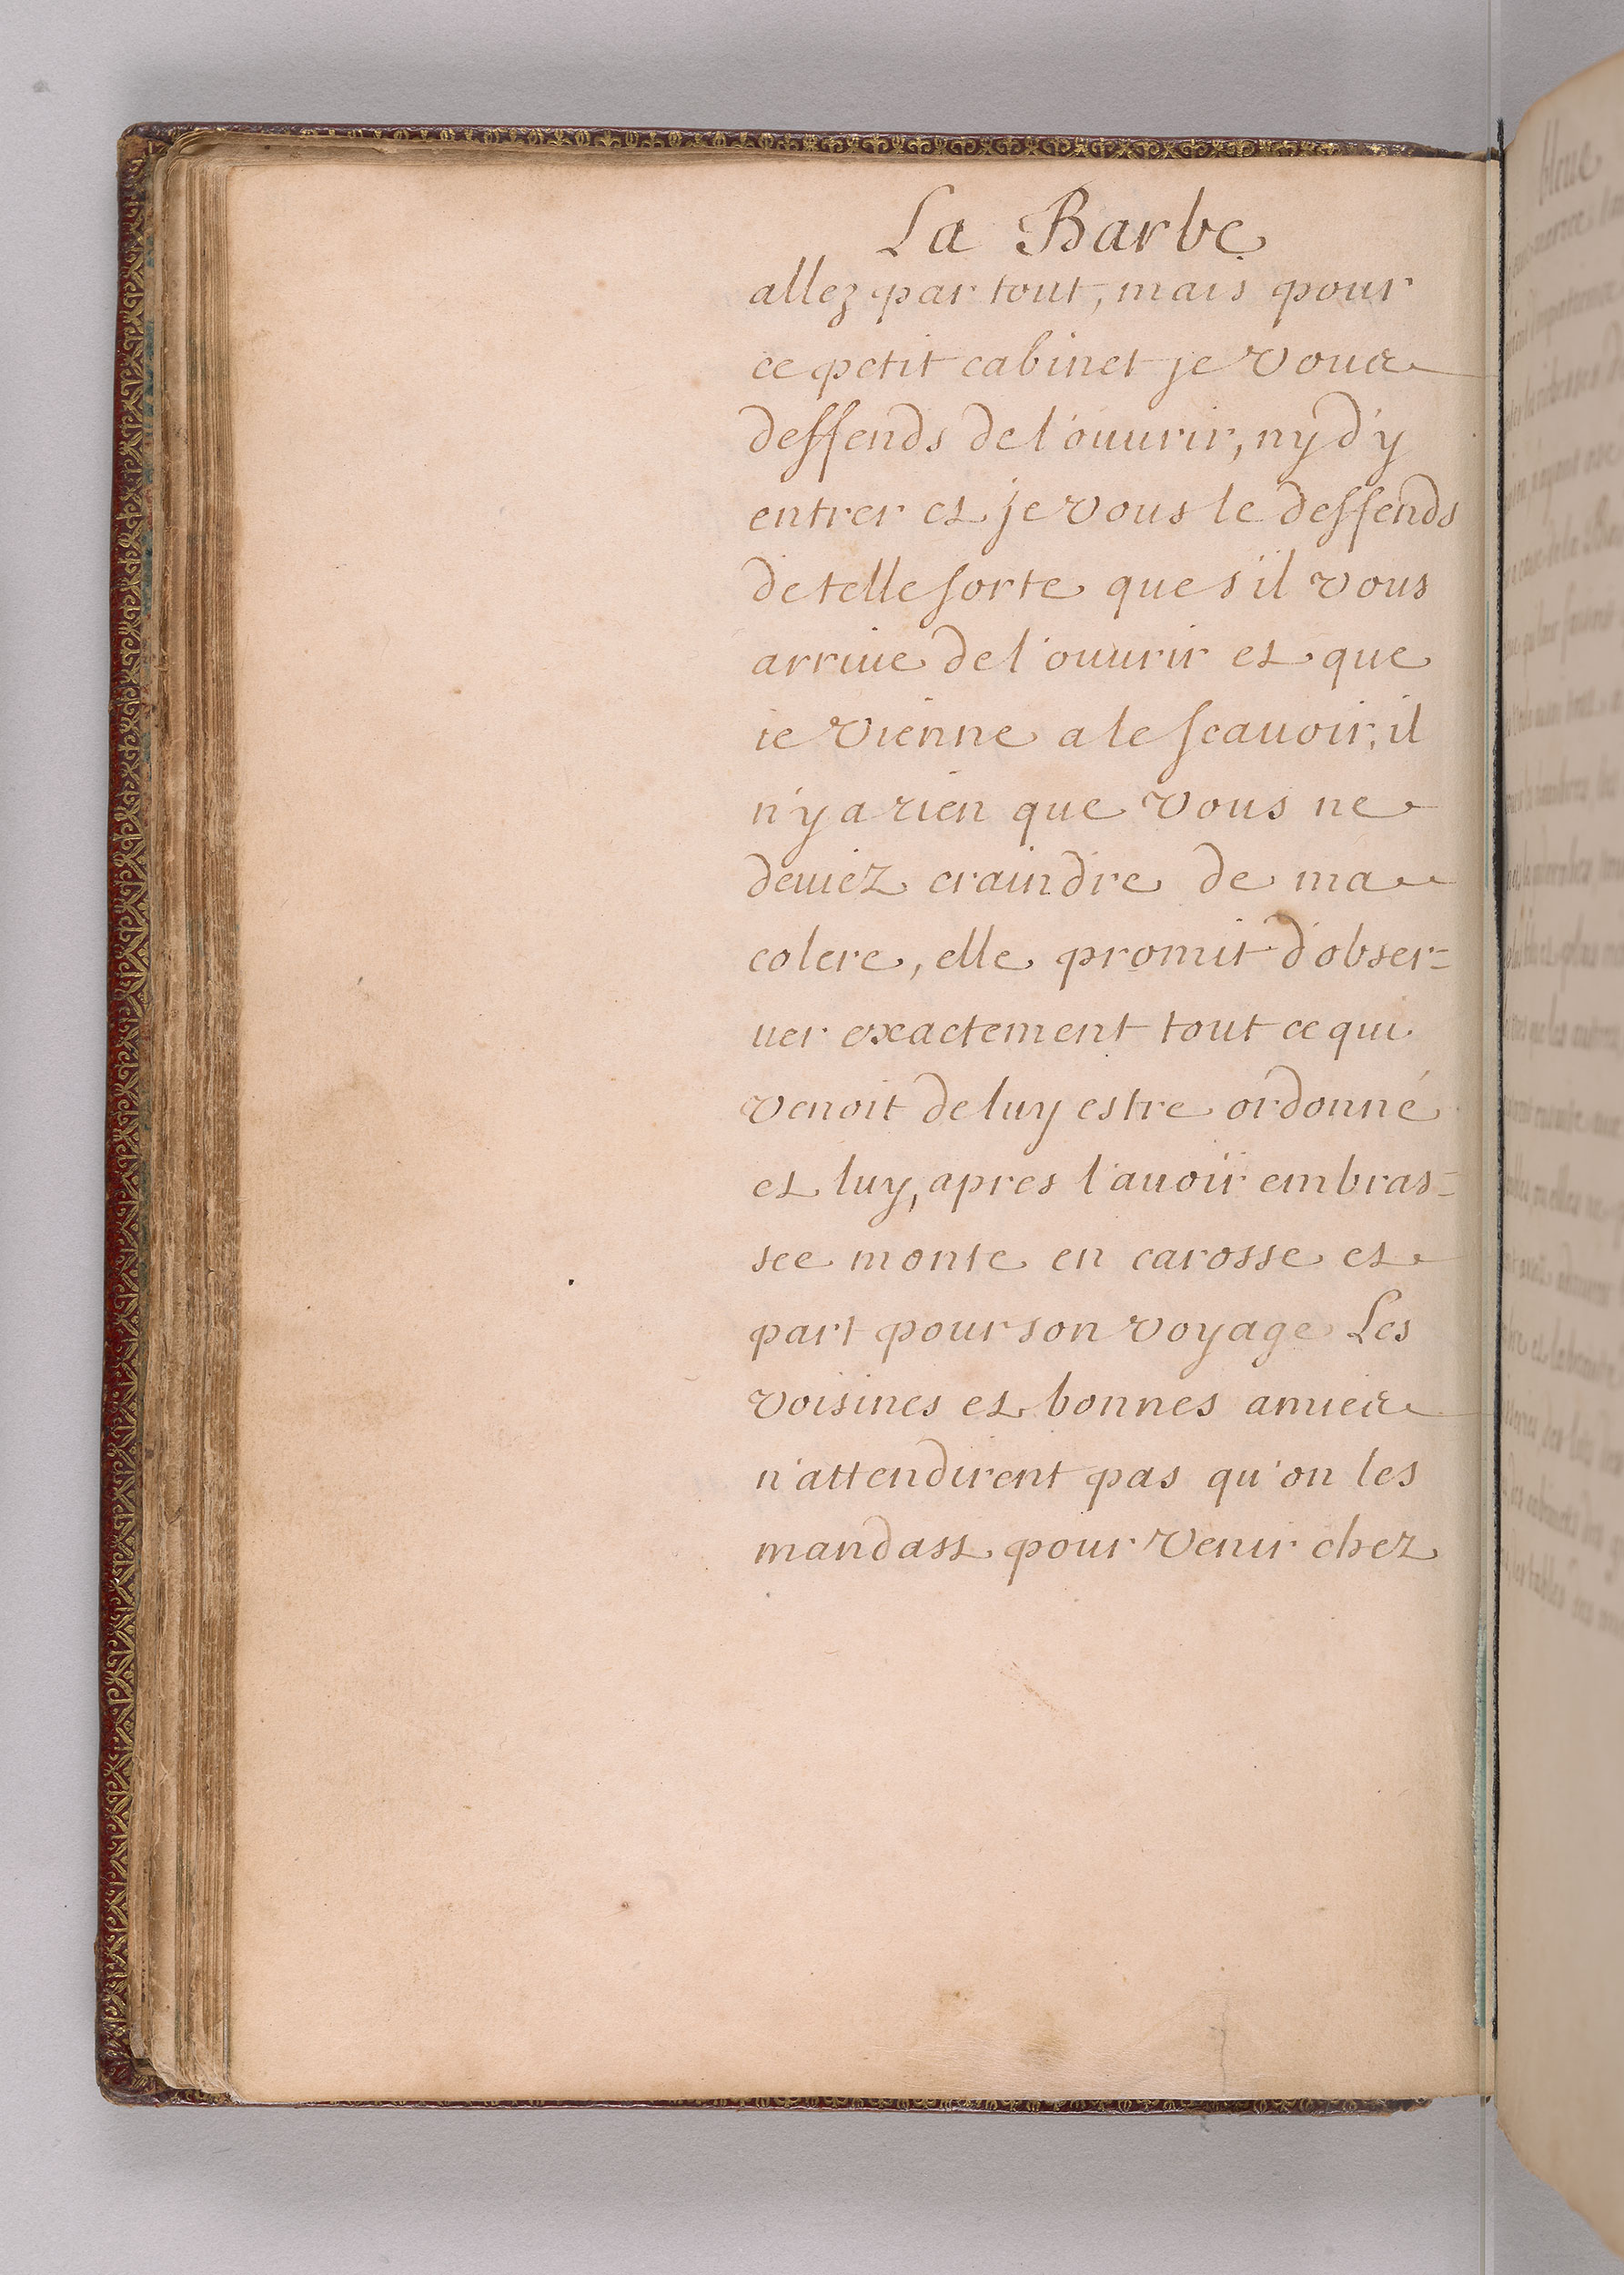 La Barbe
allez par tout, mais pour
ce petit cabinet je vous
deffends de l'ouurir, ny d'y
entrer et je vous le deffends
de telle sorte que s'il vous
arriue de l'ouurir et que
ie vienne a le scauoir, il
n'y a rien que vous ne
deuiez craindre de ma
colere, elle promit d'obser=
uer exactement tout ce qui
venoit de luy estre ordonné
et luy, apres l'auoir embras=
see monte en carosse et
part pour son voyage Les
voisines et bonnes amies
n'attendirent pas qu'on les
mandast pour venir chez
bleue